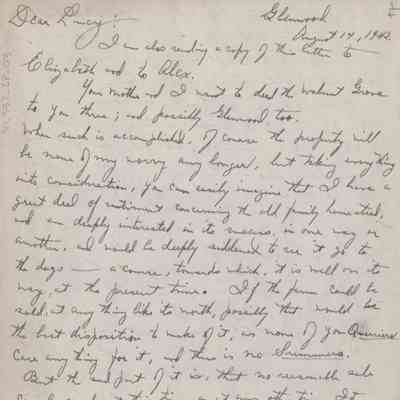 Glenwood
August 14, 1942.
Dear Lucy:
I am also sending a copy of this letter to
Elizabeth and to Alex.
Your mother and I want to deed the Walnut Grove
to you three; and possibly Glenwood too.
When such is accomplished, of course the property will
be none of my worry any longer, but taking everything
into consideration, you can easily imagine that I have a
great deal of sentiment concerning the old family homestead,
and am deeply interested in its success, in one way or
another, and would be deeply saddened to see it go to
the dogs — a course, towards which, it is well on its
way, at the present time. If the farm could be
sold, at any thing like its worth, possibly that would be
the best disposition to make of it, as none of you
care any thing for it, and there is no
But the sad part of it is, that no reasonable sale